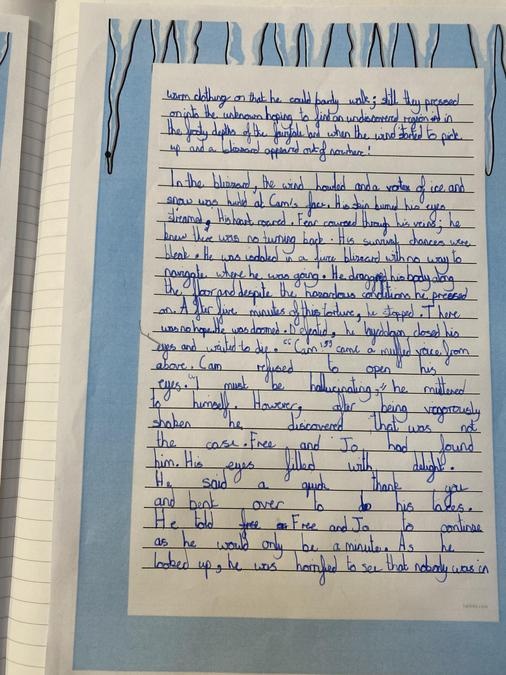 warm clothing on that he could barely walk; still they pressed
on into the unknown hoping to find an undiscovered region in
the frosty depths of the fairytale land when the wind started to pick
up and a blizzard appeared out of nowhere!
In the blizzard, the wind howled and a vortex of ice and
snow was hurled at Cam's face. His skin burned his eyes
streamed. His heart roared. Fear coursed through his veins; he
knew there was no turning back. His survival chances were
bleak. He was isolated in a fure blizzard with no way to
navigate where he was going. He dragged his body along
the floor and despite the hazardous conditions he pressed
on. After five minutes of this torture, he stopped. There
was no hope. He was doomed. Defeated, he closed his
eyes and waited to die. "Cam!" came a muffled voice from
above. Cam refused to open his
eyes. "I must be hallucinating," he muttered
to himself. However, after being vagorously
shaken he discovered that was not
the case. Free and Jo had found
him. His eyes filled with delight.
He said a quick thank you
and bent over to do his laces.
He told Free and Jo to continue
as he would only be a minute. As he
looked up, he was horrified to see that nobody was in